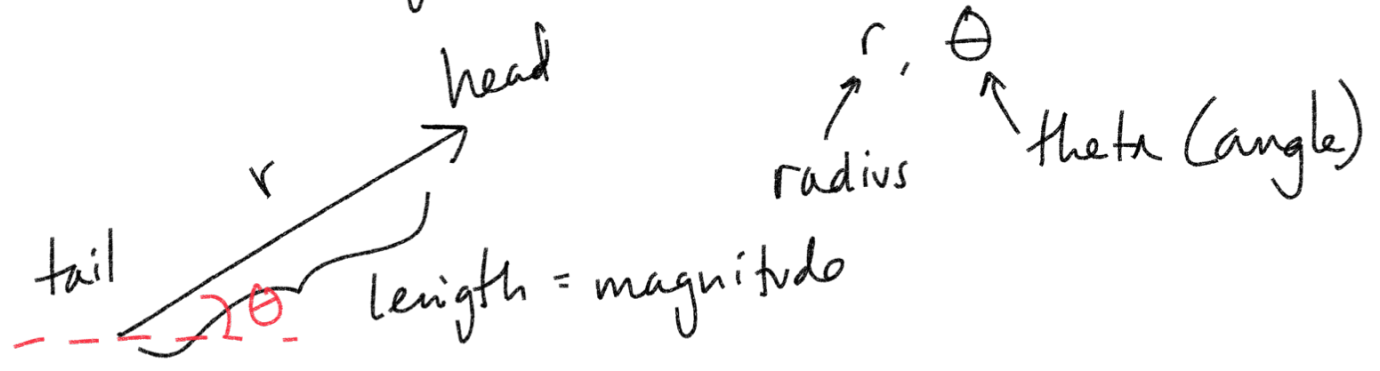 head
r, θ
r
radius
theta (angle)
tail
θ
length = magnitude